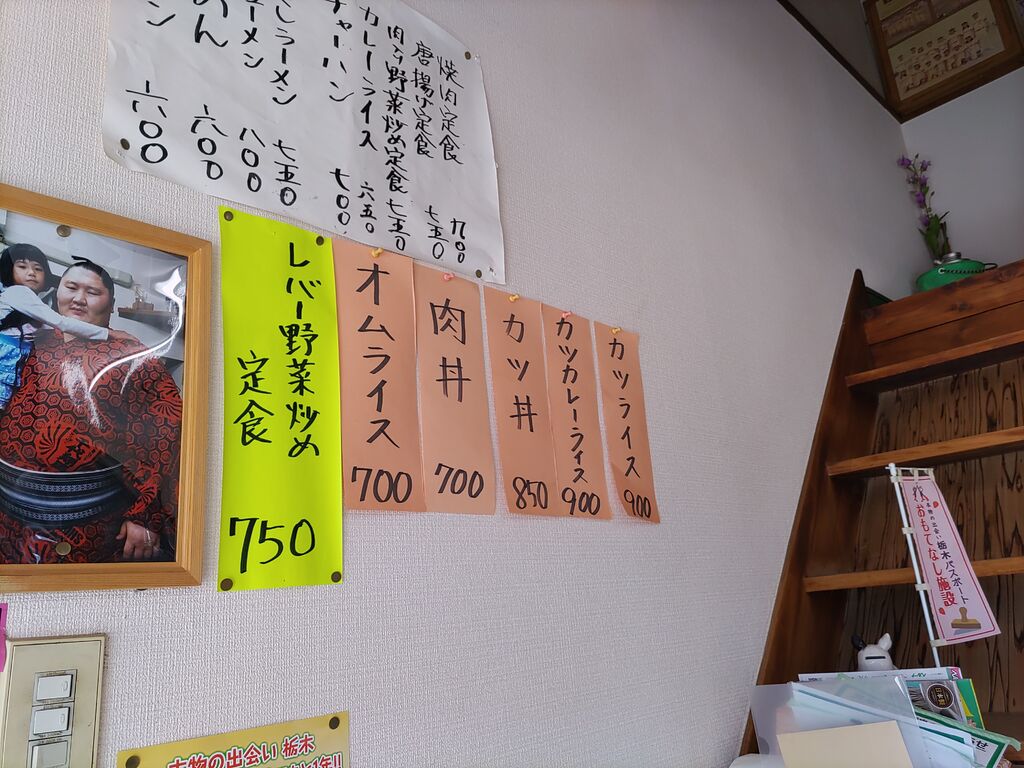 焼肉定食 九〇〇
唐揚げ定食 七五〇
肉入り野菜炒め定食 七五〇
カレーライス 六五〇
チャーハン 七〇〇
ラーメン 七五〇
八〇〇
六〇〇
ン 一六〇〇
レバー野菜炒め
定食
750
オムライス
700
肉丼
700
カツ丼
850
カツカレーライス
900
カツライス
900
本物の出会い 栃木
栃木パスポート
おもてなし施設
本物の出会い 栃木